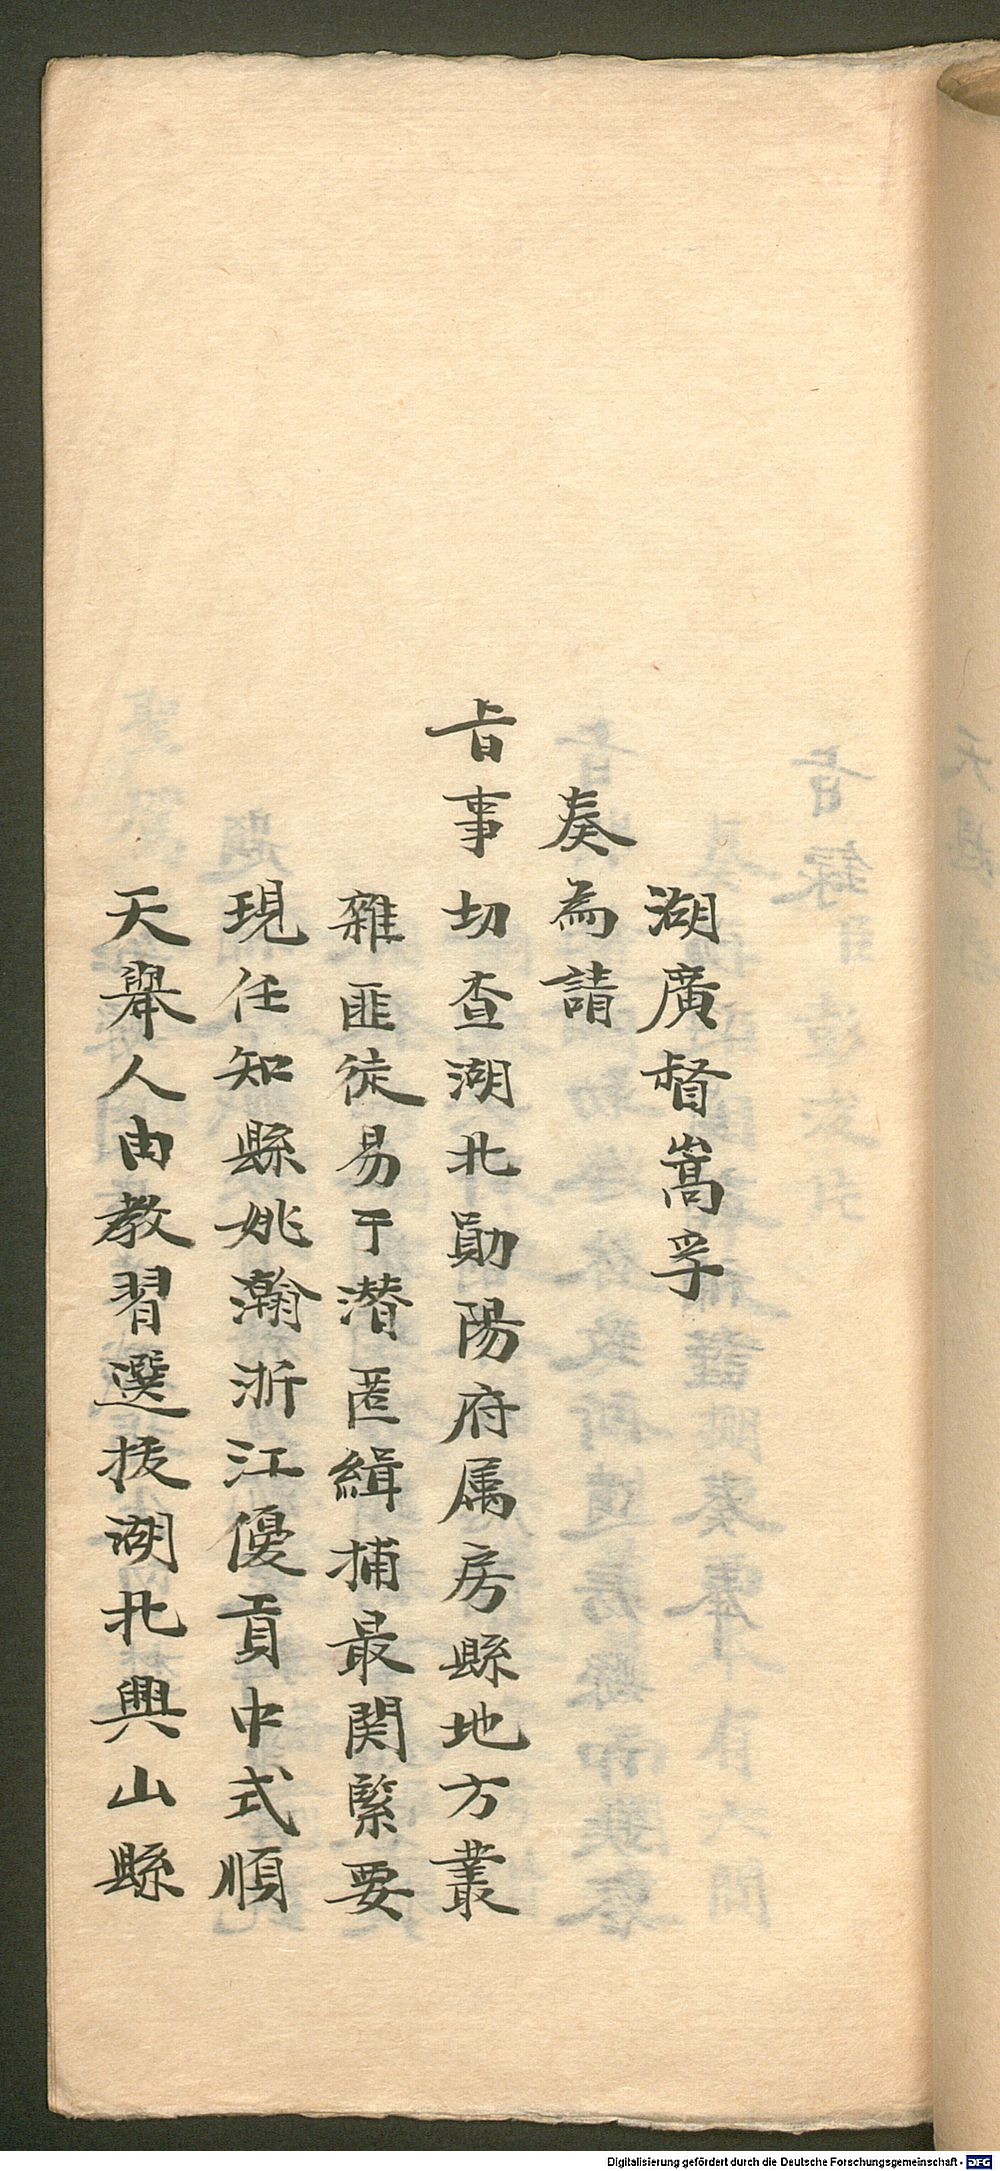 湖廣督嵩孚
奏為請
旨事切查湖北勛陽府属房縣地方叢
雜匪徒易于潛匿緝捕最関緊要
現任知縣姚瀚浙江優貢中式順
天舉人由教習選拔湖北興山縣
Digitalisierung gefördert durch die Deutsche Forschungsgemeinschaft - DFG